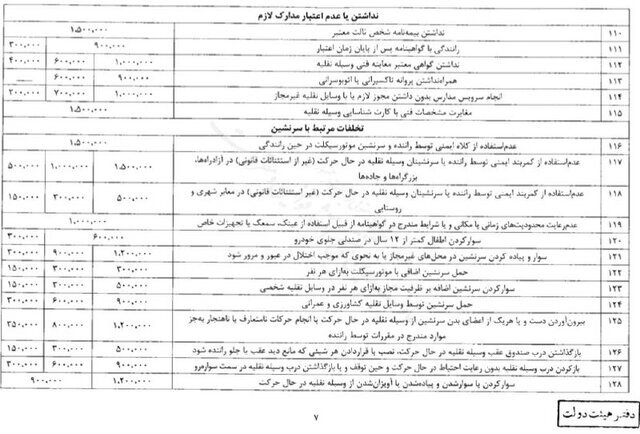 نداشتن یا عدم اعتبار مدارک لازم
۱۱۰ نداشتن بیمه‌نامه شخص ثالث معتبر ۱,۵۰۰,۰۰۰
۱۱۱ رانندگی با گواهینامه پس از پایان زمان اعتبار ۹۰۰,۰۰۰ ۳۰۰,۰۰۰
۱۱۲ نداشتن گواهی معتبر معاینه فنی وسیله نقلیه ۱,۰۰۰,۰۰۰ ۶۰۰,۰۰۰ ۴۰۰,۰۰۰
۱۱۳ همراه‌نداشتن پروانه تاکسیرانی یا اتوبوسرانی ۹۰۰,۰۰۰ ۶۰۰,۰۰۰
۱۱۴ انجام سرویس مدارس بدون داشتن مجوز لازم یا با وسایل نقلیه غیرمجاز ۱,۰۰۰,۰۰۰ ۷۰۰,۰۰۰ ۳۰۰,۰۰۰
۱۱۵ مغایرت مشخصات فنی با کارت شناسایی وسیله نقلیه ۱,۵۰۰,۰۰۰
تخلفات مرتبط با سرنشین
۱۱۶ عدم‌استفاده از کلاه ایمنی توسط راننده و سرنشین موتورسیکلت در حین رانندگی ۱,۵۰۰,۰۰۰
۱۱۷ عدم‌استفاده از کمربند ایمنی توسط راننده یا سرنشینان وسیله نقلیه در حال حرکت (غیر از استثنائات قانونی) در آزادراه‌ها، ۱,۵۰۰,۰۰۰ ۱,۰۰۰,۰۰۰ ۵۰۰,۰۰۰
بزرگراه‌ها و جاده‌ها
۱۱۸ عدم‌استفاده از کمربند ایمنی توسط راننده یا سرنشینان وسیله نقلیه در حال حرکت (غیر استثنائات قانونی) در معابر شهری و ۵۰۰,۰۰۰ ۳۰۰,۰۰۰ ۱۵۰,۰۰۰
روستایی
۱۱۹ عدم‌رعایت محدودیت‌های زمانی یا مکانی و یا شرایط مندرج در گواهینامه از قبیل استفاده از عینک، سمعک یا تجهیزات خاص ۱,۰۰۰,۰۰۰
۱۲۰ سوارکردن اطفال کمتر از ۱۲ سال در صندلی جلوی خودرو ۶۰۰,۰۰۰ ۳۰۰,۰۰۰
۱۲۱ سوار و پیاده کردن سرنشین در محل‌های غیرمجاز یا به نحوی که موجب اختلال در عبور و مرور شود ۱,۲۰۰,۰۰۰ ۹۰۰,۰۰۰ ۳۰۰,۰۰۰
۱۲۲ حمل سرنشین اضافی با موتورسیکلت به‌ازای هر نفر ۳۰۰,۰۰۰ ۳۰۰,۰۰۰ ۱۵۰,۰۰۰
۱۲۳ سوارکردن سرنشین اضافه بر ظرفیت مجاز به‌ازای هر نفر در وسایل نقلیه شخصی ۵۰۰,۰۰۰ ۳۰۰,۰۰۰ ۱۵۰,۰۰۰
۱۲۴ حمل سرنشین توسط وسایل نقلیه کشاورزی و عمرانی ۹۰۰,۰۰۰ ۶۰۰,۰۰۰ ۳۰۰,۰۰۰
۱۲۵ بیرون‌آوردن دست و یا هریک از اعضای بدن سرنشین از وسیله نقلیه در حال حرکت یا انجام حرکات نامتعارف یا ناهنجار به‌جز ۱,۲۰۰,۰۰۰ ۸۰۰,۰۰۰ ۲۵۰,۰۰۰
موارد مندرج در مقررات توسط راننده
۱۲۶ بازگذاشتن درب صندوق عقب وسیله نقلیه در حال حرکت، نصب یا قراردادن هر شیئی که مانع دید عقب یا جلو راننده شود ۵۰۰,۰۰۰ ۳۰۰,۰۰۰ ۱۵۰,۰۰۰
۱۲۷ بازکردن درب وسیله نقلیه بدون رعایت احتیاط در حال حرکت و حین توقف و یا بازگذاشتن درب وسیله نقلیه در سمت سواره‌رو ۹۰۰,۰۰۰ ۶۰۰,۰۰۰ ۳۰۰,۰۰۰
۱۲۸ سوارکردن یا سوارشدن و پیاده‌شدن یا آویزان‌شدن از وسیله نقلیه در حال حرکت ۱,۲۰۰,۰۰۰ ۹۰۰,۰۰۰
۷
دفتر هیئت دولت